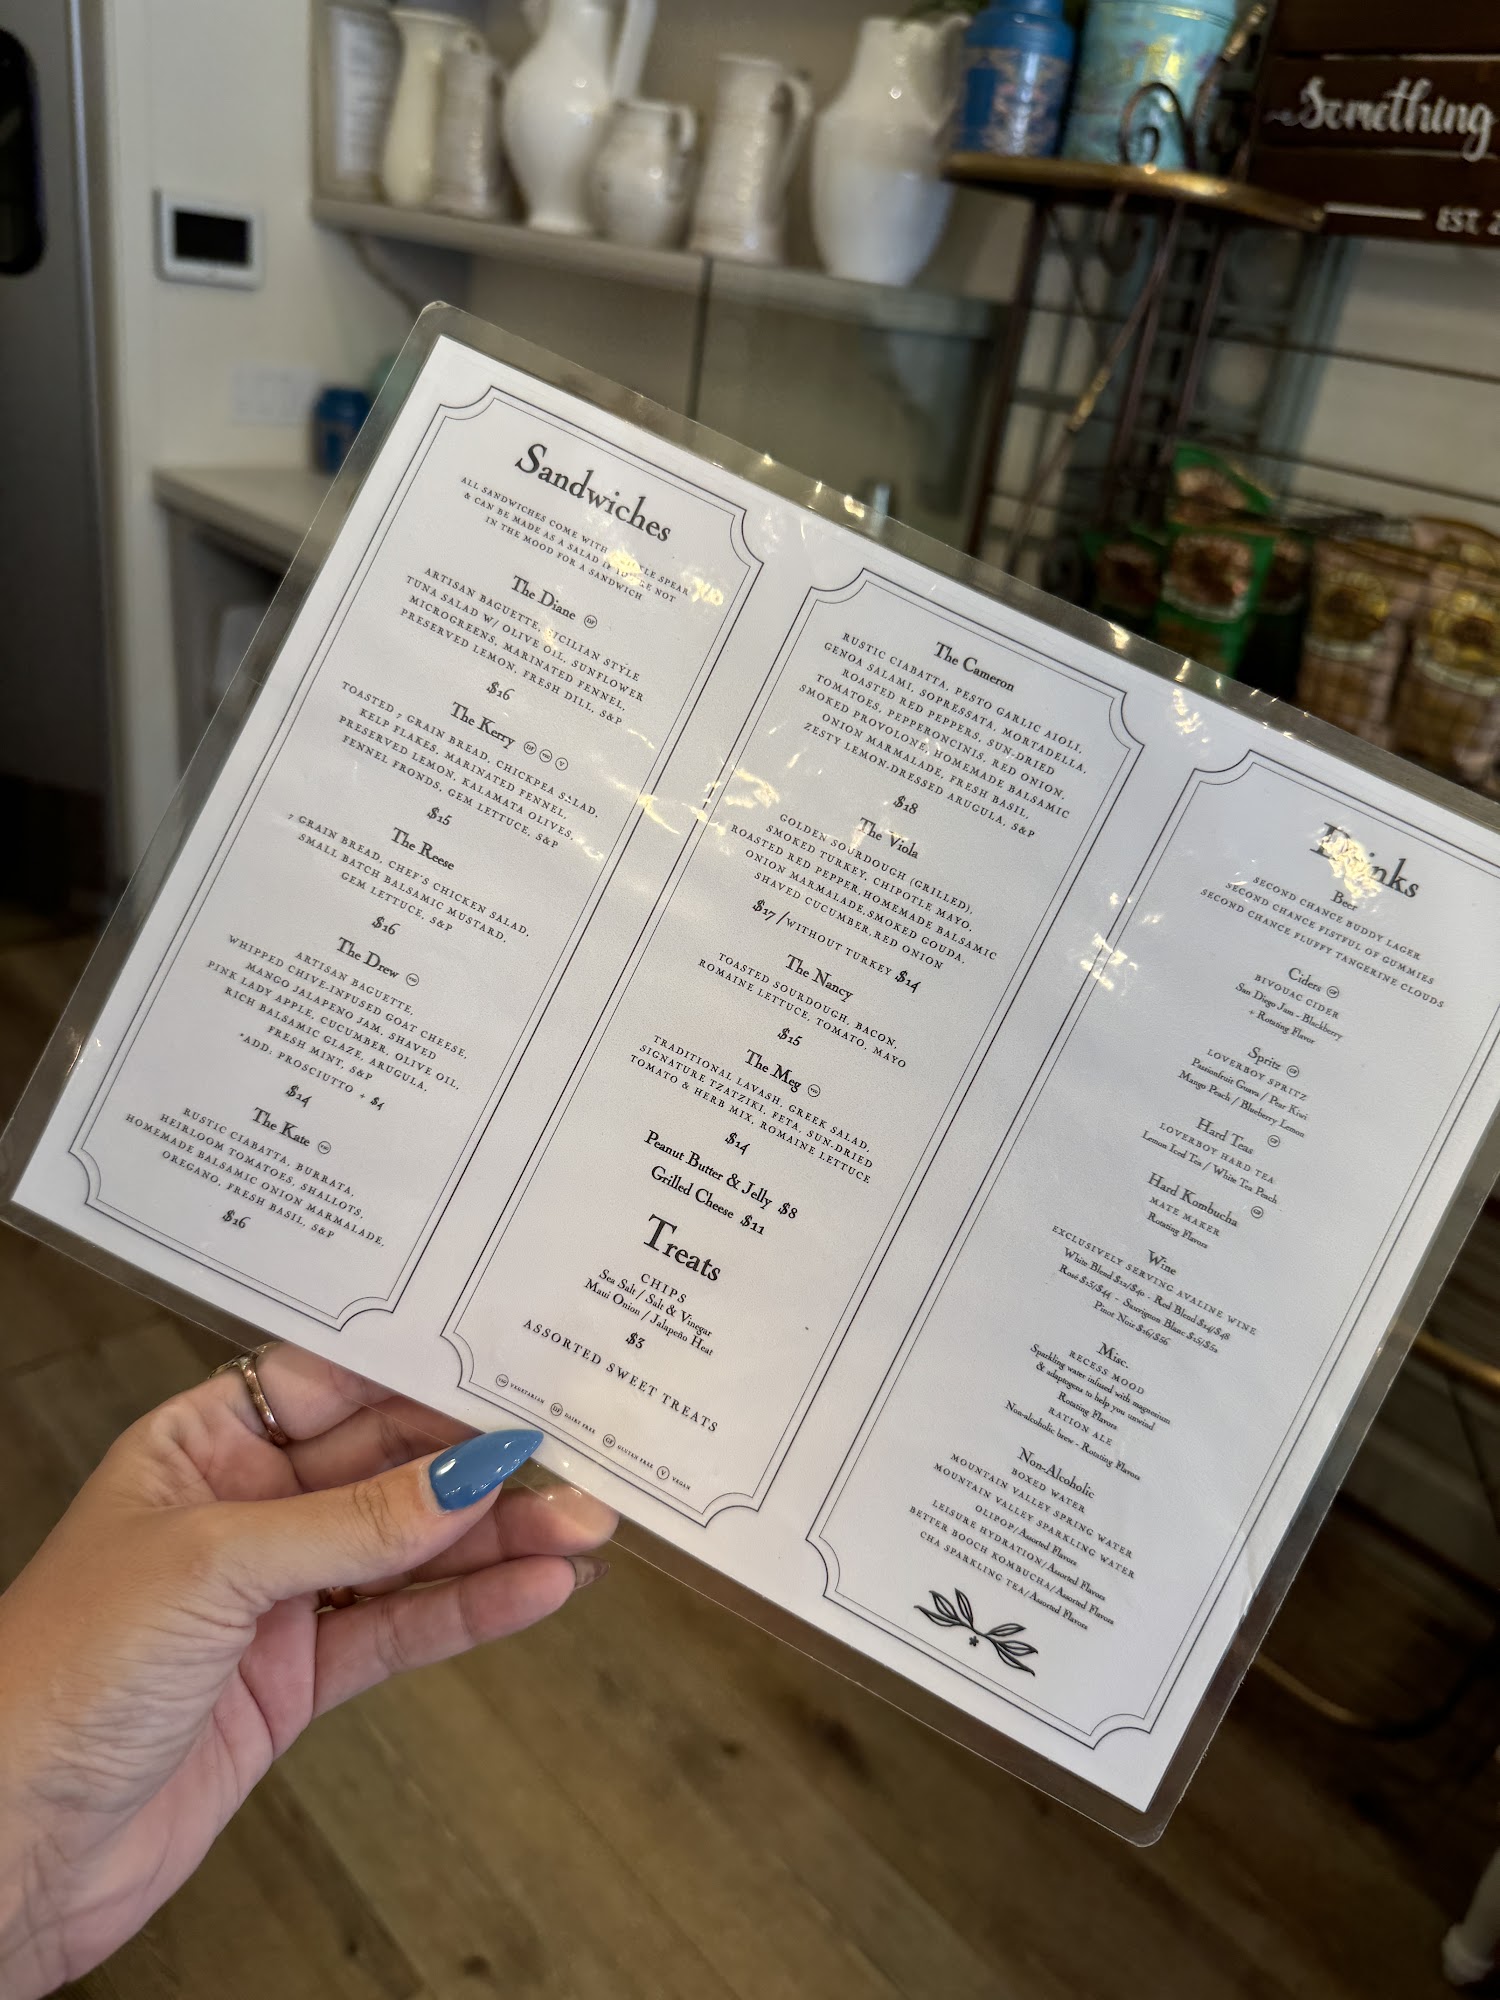 Something
EST. 2
Sandwiches
ALL SANDWICHES COME WITH SPEAR
& CAN BE MADE AS A SALAD IF NOT
IN THE MOOD FOR A SANDWICH
The Diane DF
ARTISAN BAGUETTE, SICILIAN STYLE
TUNA SALAD W/ OLIVE OIL, SUNFLOWER
MICROGREENS, MARINATED FENNEL,
PRESERVED LEMON, FRESH DILL, S&P
$16
The Kerry DF VG V
TOASTED 7 GRAIN BREAD, CHICKPEA SALAD,
KELP FLAKES, MARINATED FENNEL,
PRESERVED LEMON, KALAMATA OLIVES,
FENNEL FRONDS, GEM LETTUCE, S&P
$15
The Reese
7 GRAIN BREAD, CHEF'S CHICKEN SALAD,
SMALL BATCH BALSAMIC MUSTARD,
GEM LETTUCE, S&P
$16
The Drew VG
ARTISAN BAGUETTE,
WHIPPED CHIVE-INFUSED GOAT CHEESE,
MANGO JALAPENO JAM, SHAVED
PINK LADY APPLE, CUCUMBER, OLIVE OIL,
RICH BALSAMIC GLAZE, ARUGULA,
FRESH MINT, S&P
*ADD: PROSCIUTTO + $4
$14
The Kate VG
RUSTIC CIABATTA, BURRATA,
HEIRLOOM TOMATOES, SHALLOTS,
HOMEMADE BALSAMIC ONION MARMALADE,
OREGANO, FRESH BASIL, S&P
$16
The Cameron
RUSTIC CIABATTA, PESTO GARLIC AIOLI,
GENOA SALAMI, SOPRESSATA, MORTADELLA,
ROASTED RED PEPPERS, SUN-DRIED
TOMATOES, PEPPERONCINIS, RED ONION,
SMOKED PROVOLONE, HOMEMADE BALSAMIC
ONION MARMALADE, FRESH BASIL,
ZESTY LEMON-DRESSED ARUGULA, S&P
$18
The Viola
GOLDEN SOURDOUGH (GRILLED),
SMOKED TURKEY, CHIPOTLE MAYO,
ROASTED RED PEPPER, HOMEMADE BALSAMIC
ONION MARMALADE, SMOKED GOUDA,
SHAVED CUCUMBER, RED ONION
$17 /WITHOUT TURKEY $14
The Nancy
TOASTED SOURDOUGH, BACON,
ROMAINE LETTUCE, TOMATO, MAYO
$15
The Meg VG
TRADITIONAL LAVASH, GREEK SALAD,
SIGNATURE TZATZIKI, FETA, SUN-DRIED
TOMATO & HERB MIX, ROMAINE LETTUCE
$14
Peanut Butter & Jelly $8
Grilled Cheese $11
Treats
CHIPS
Sea Salt / Salt & Vinegar
Maui Onion / Jalapeño Heat
$3
ASSORTED SWEET TREATS
VG VEGETARIAN DF DAIRY FREE GF GLUTEN FREE V VEGAN
Drinks
Beer
SECOND CHANCE BUDDY LAGER
SECOND CHANCE FISTFUL OF GUMMIES
SECOND CHANCE FLUFFY TANGERINE CLOUDS
Ciders GF
BIVOUAC CIDER
San Diego Jam - Blackberry
+ Rotating Flavor
Spritz GF
LOVERBOY SPRITZ
Passionfruit Guava / Pear Kiwi
Mango Peach / Blueberry Lemon
Hard Teas GF
LOVERBOY HARD TEA
Lemon Iced Tea / White Tea Peach
Hard Kombucha GF
MATE MAKER
Rotating Flavors
Wine
EXCLUSIVELY SERVING AVALINE WINE
White Blend $12/$40 - Red Blend $14/$48
Rosé $13/$44 - Sauvignon Blanc $15/$52
Pinot Noir $16/$56
Misc.
RECESS MOOD
Sparkling water infused with magnesium
& adaptogens to help you unwind
Rotating Flavors
RATION ALE
Non-alcoholic brew - Rotating Flavors
Non-Alcoholic
BOXED WATER
MOUNTAIN VALLEY SPRING WATER
MOUNTAIN VALLEY SPARKLING WATER
OLIPOP/Assorted Flavors
LEISURE HYDRATION/Assorted Flavors
BETTER BOOCH KOMBUCHA/Assorted Flavors
CHA SPARKLING TEA/Assorted Flavors